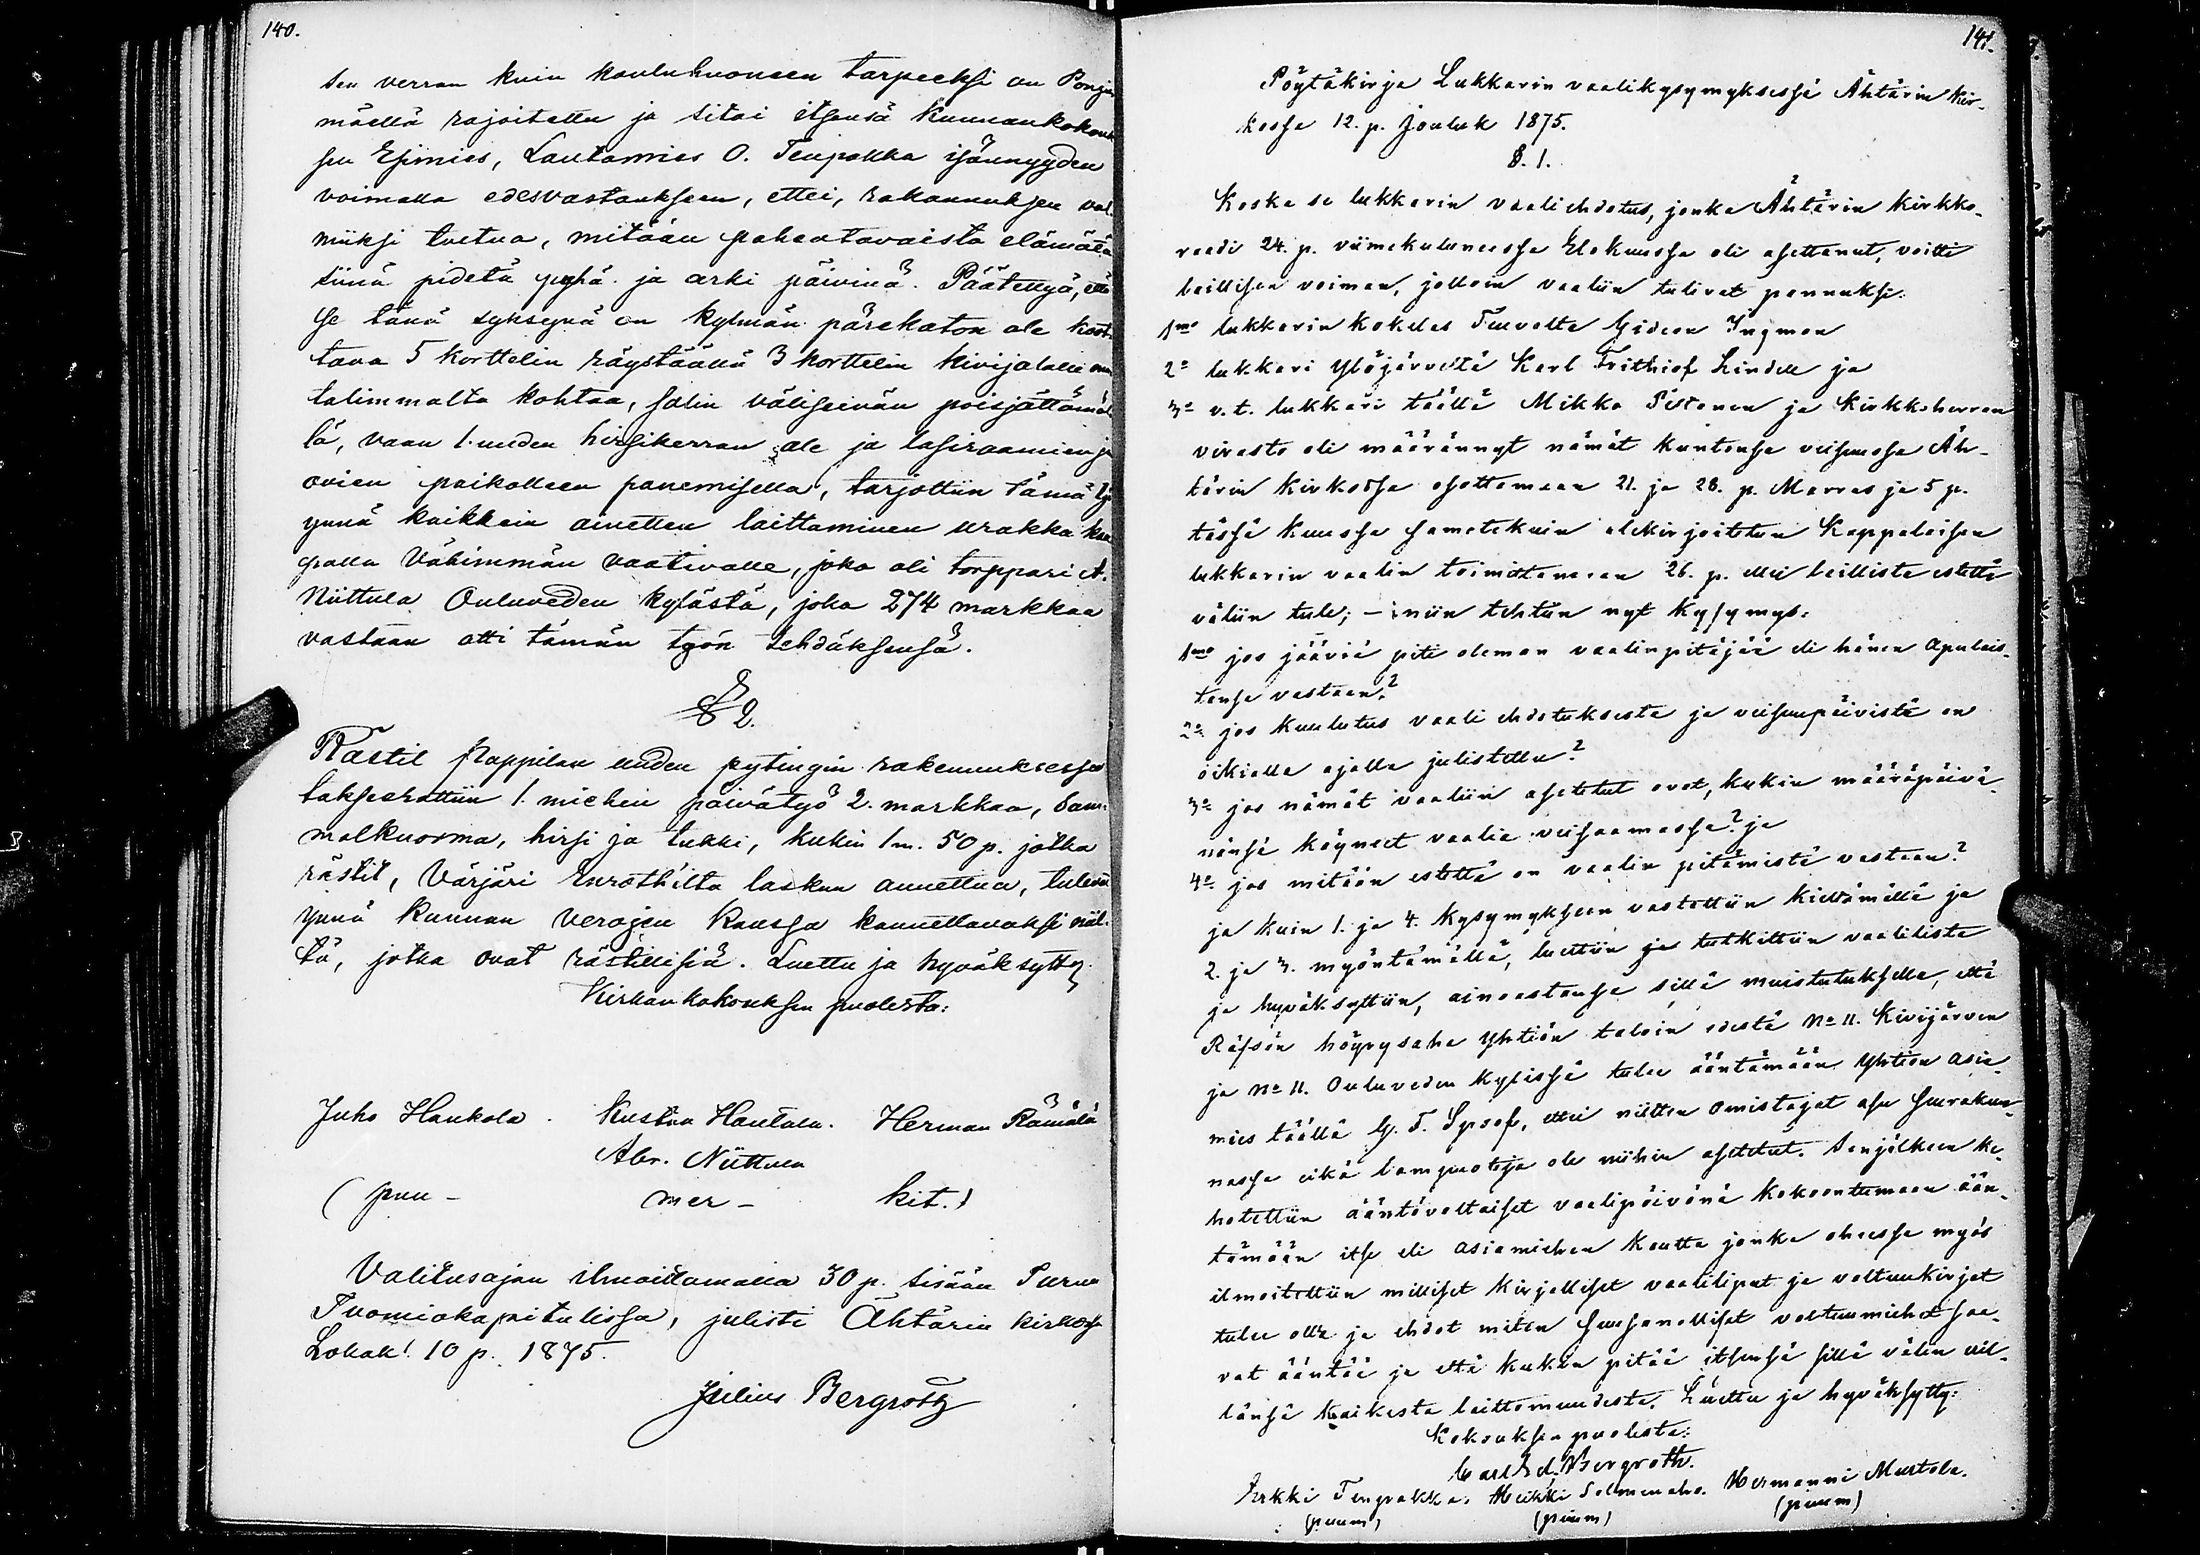 140.
sen verran kuin kouluhuoneen tarpeeksi on Ponzin
mäellä rajoitettu ja sitoi itsensä Kunnankokouk
sen Esimies, Lautamies O. Tenpakka isännyyden
voimalla edesvastaukseen, ettei, rakannuksen val
miiksi tultua, mitään pahantavaista elämätä
siinä pidetä pyhä ja arki päivinä. Päätettyä, että
se tänä syksynä on kylmän pärekaton ale
tava 5 korttelin räystäällä 3 korttelin kivijalalle
talimmalta kohtaa, salin väliseinän poisjättämäl
lä, vaan 1. uuden hirsikerran ale ja lasiraamien ja
ovien paikalleen panemisella, tarjottiin tämä työ
ynnä kaikkein ainetten laittaminen urakka kau
palla Vähimmän vaativalle, joka oli torppari A.
Niittula Ouluveden kylästä, joka 274 markkaa
vastaan otti tämän työn tehdäksensä.
§ 2.
Rästit Pappilan uuden pytingin rakennuksessa
takseerattiin 1. miehen päivätyö 2. markkaa, Sam-
malkuorma, hirsi ja tukki, kukin 1 m. 50 p. jotka
rästit, Värjäri laskun annettua, tulevat
ynnä kunnan verojen kanssa kannettavaksi niil-
tä, jotka ovat rästillisiä. Luettu ja hyväksytty
Kirkonkokouksen puolesta:
Juho Haukola. Kustaa Hautala. Herman Rämälä
Abr. Niittula
(puu- mer- kit.)
Valitusajan ilmoittamalla 30 p. sisään Turun
Tuomiokapitulissa, julisti Ähtärin kirkossa
Lokak. 10 p. 1875.
Julius Bergroth
141.
Pöytäkirja Lukkarin vaalikysymyksessä Ähtärin kir-
kossa 12. p. Jouluk 1875.
§. 1.
Koska se lukkarin vaaliehdotus, jonka Ähtärin kirkko-
raadi 24. p. viimekuluneessa Elokuussa oli asettanut, voitti
laillisen voiman, jolloin vaaliin tulivat pannuksi:
1mo lukkarinkokelas Turvolta Gideon Ingman
2o lukkari Ylöjärveltä Karl Frithiof Lindell ja
3o v.t. lukkari täällä Mikko Pistonen ja kirkkoherran
virasto oli määrännyt nämät kuntonsa veisuussa Äh-
tärin kirkossa osottamaan 21. ja 28. p. Marras ja 5 p.
tässä kuussa sametekuin alekirjoitetun Kappalaisen
lukkarin vaalin toimittamaan 26. p. ellei laillista estettä
väliin tule; - niin tehtiin nyt kysymys:
1mo jos jääviä piti oleman vaalinpitäjää eli hänen apulais-
tansa vastaan?
2o jos kuulutus vaali ehdotuksesta ja veisuupäivistä on
oikialla ajalla julistettu?
3o jos nämät vaaliin asetetut ovat, kukin määräpäivä-
nänsä käyneet vaalia veisaamassa? ja
4o jos mitään estettä on vaalin pitämistä vastaan?
ja kuin 1. ja 4. kysymykseen vastattiin kieltämällä ja
2. ja 3. myöntämällä, luettiin ja tutkittiin vaalilista
ja hyväksyttiin, ainoastansa sillä muistutuksella, että
Räfsön höyrysaha Yhtiön taloin edestä No 11. Kivijärven
ja No 11. Ouluveden kylissä tulee ääntämään Yhtiön asia-
mies täällä G. F. Sysof, ettei niitten omistajat asu seurakun-
nassa eikä lampuoteja ole niihin asetetut. Senjälkeen ke-
hotettiin ääntövaltaiset vaalipäivänä kokoontumaan ään-
tämään itse eli asiamiehen kautta jonka ohessa myös
ilmoitettiin milliset kirjalliset vaaliliput ja valtuukirjat
tulee olla ja ehdot miten suusanalliset valtuumiehet saa-
vat ääntää ja että kukin pitää itsensä sillä välin vil-
länsä kaikesta laittomuudesta. Luettu ja hyväksytty:
Kokouksen puolesta:
Carl Ed. Bergroth.
Erkki Tenpakka. Heikki Salmenaho. Hermanni Murtola.
(puum) (puum) (puum)